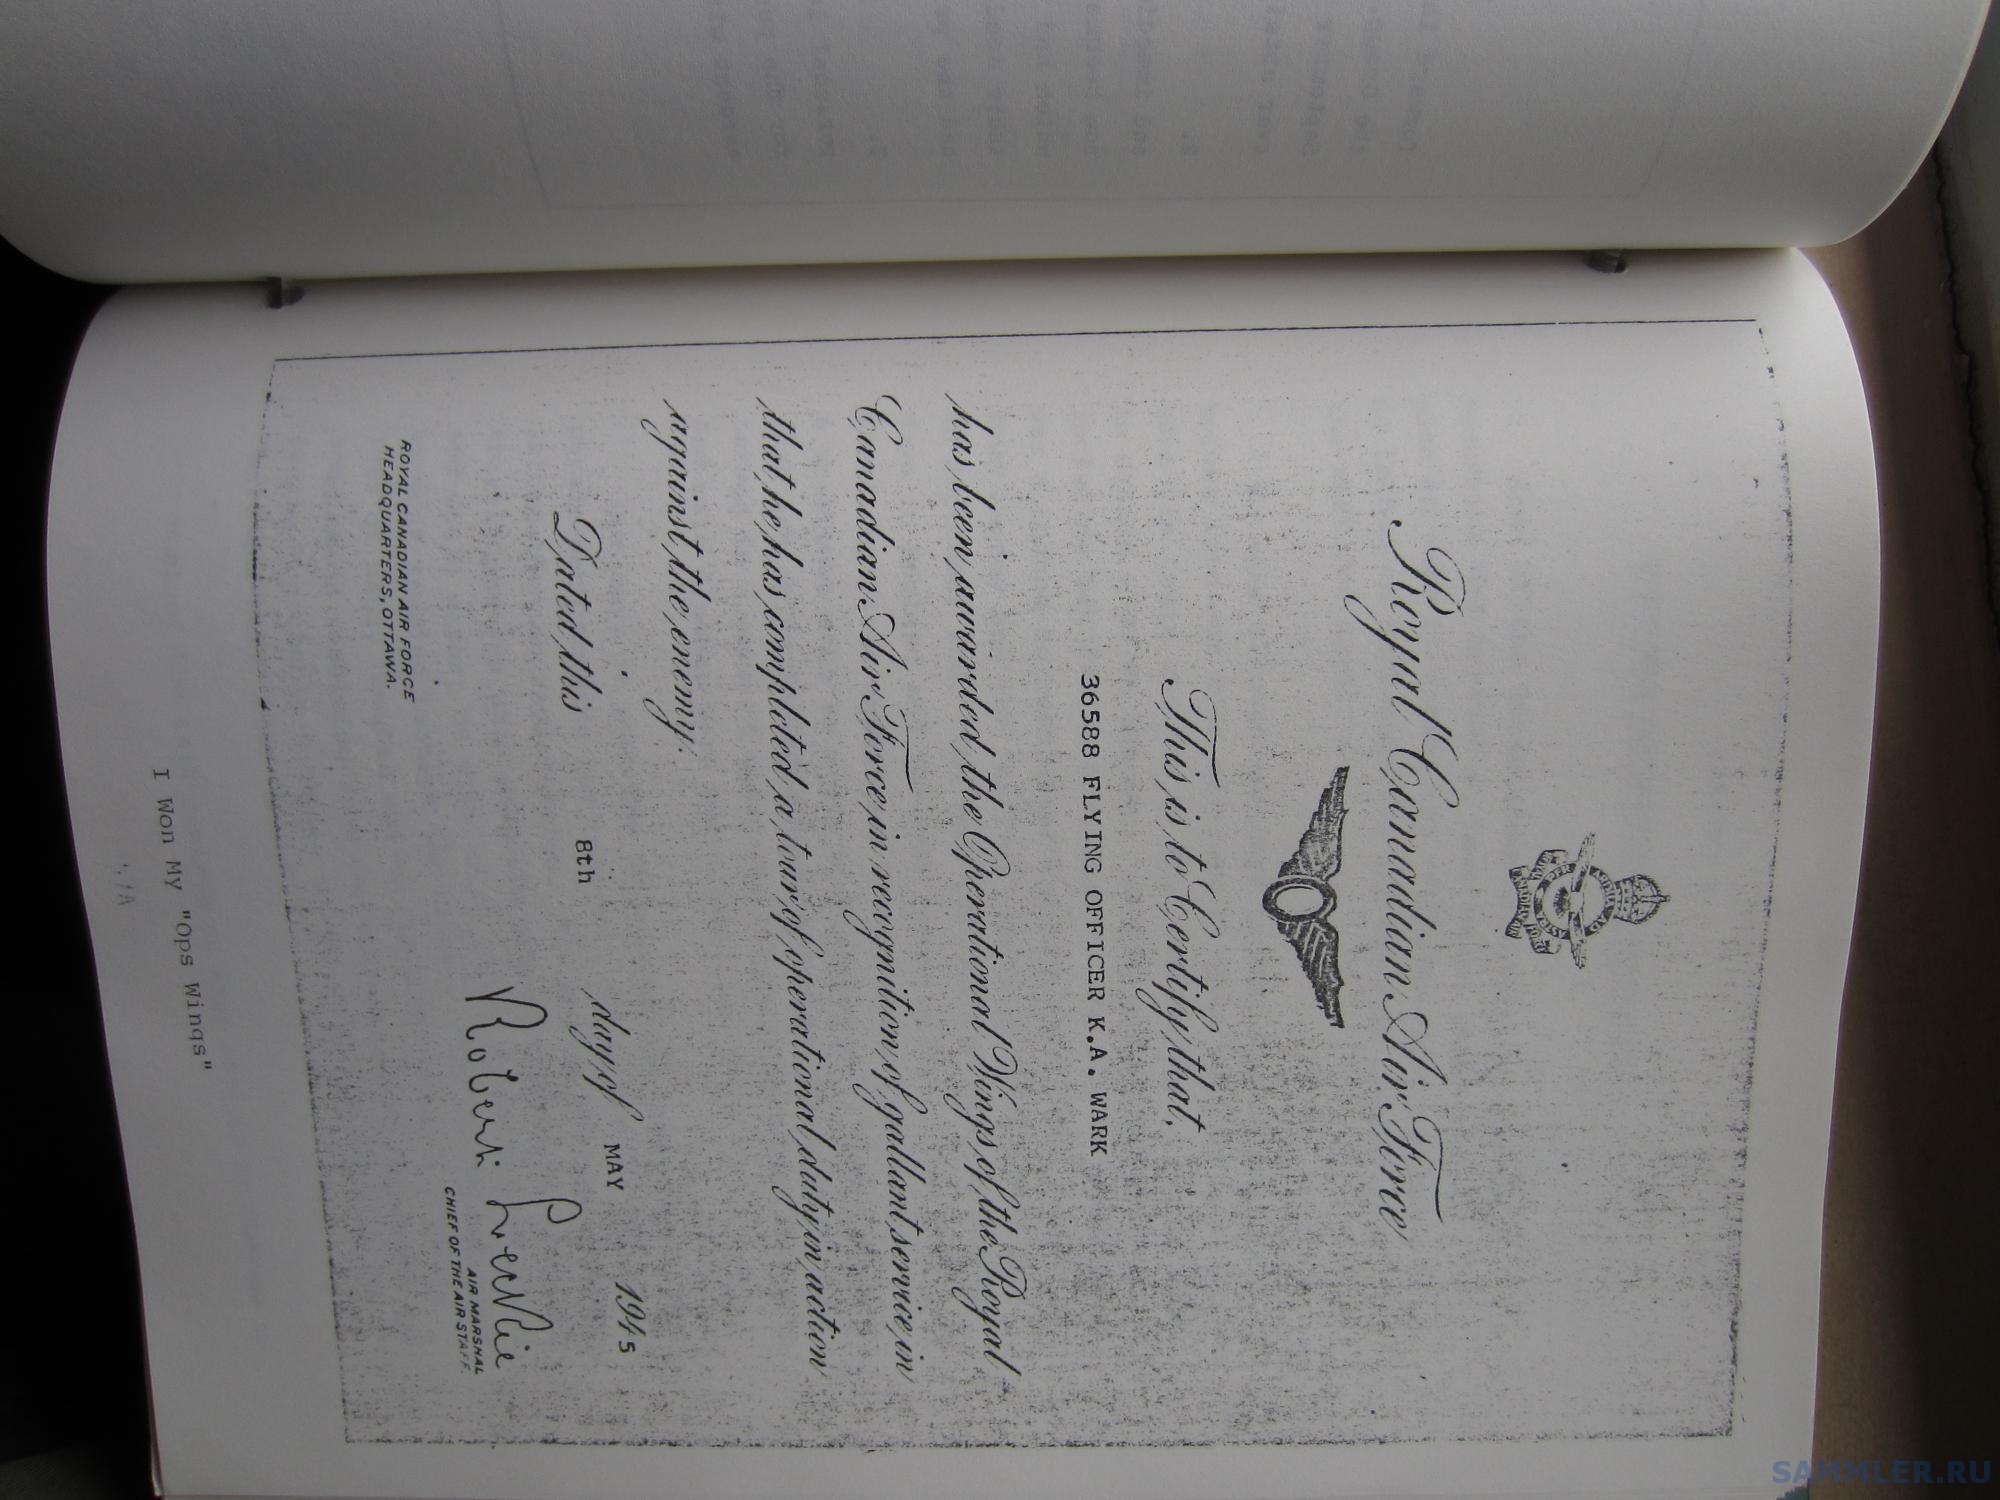 Royal Canadian Air Force
This is to Certify that,
36588 FLYING OFFICER K.A. WARK
has been awarded the Operational Wings of the Royal
Canadian Air Force in recognition of gallant service in
that he has completed a tour of operational duty in action
against the enemy.
Dated this 8th day of MAY 1945
Robert Leckie
AIR MARSHAL
CHIEF OF THE AIR STAFF
ROYAL CANADIAN AIR FORCE
HEADQUARTERS, OTTAWA.
I Won My "Ops Wings"
SAMMLER.RU